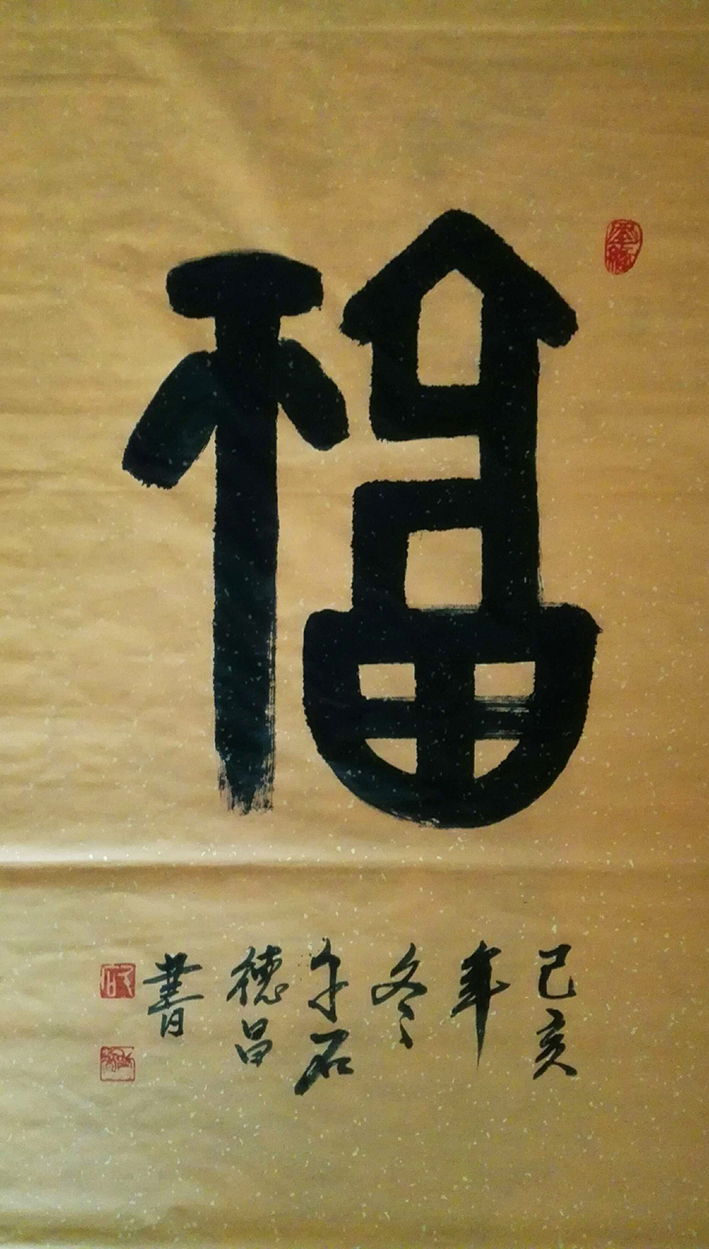 福
己亥
年
冬
石
德昌
書